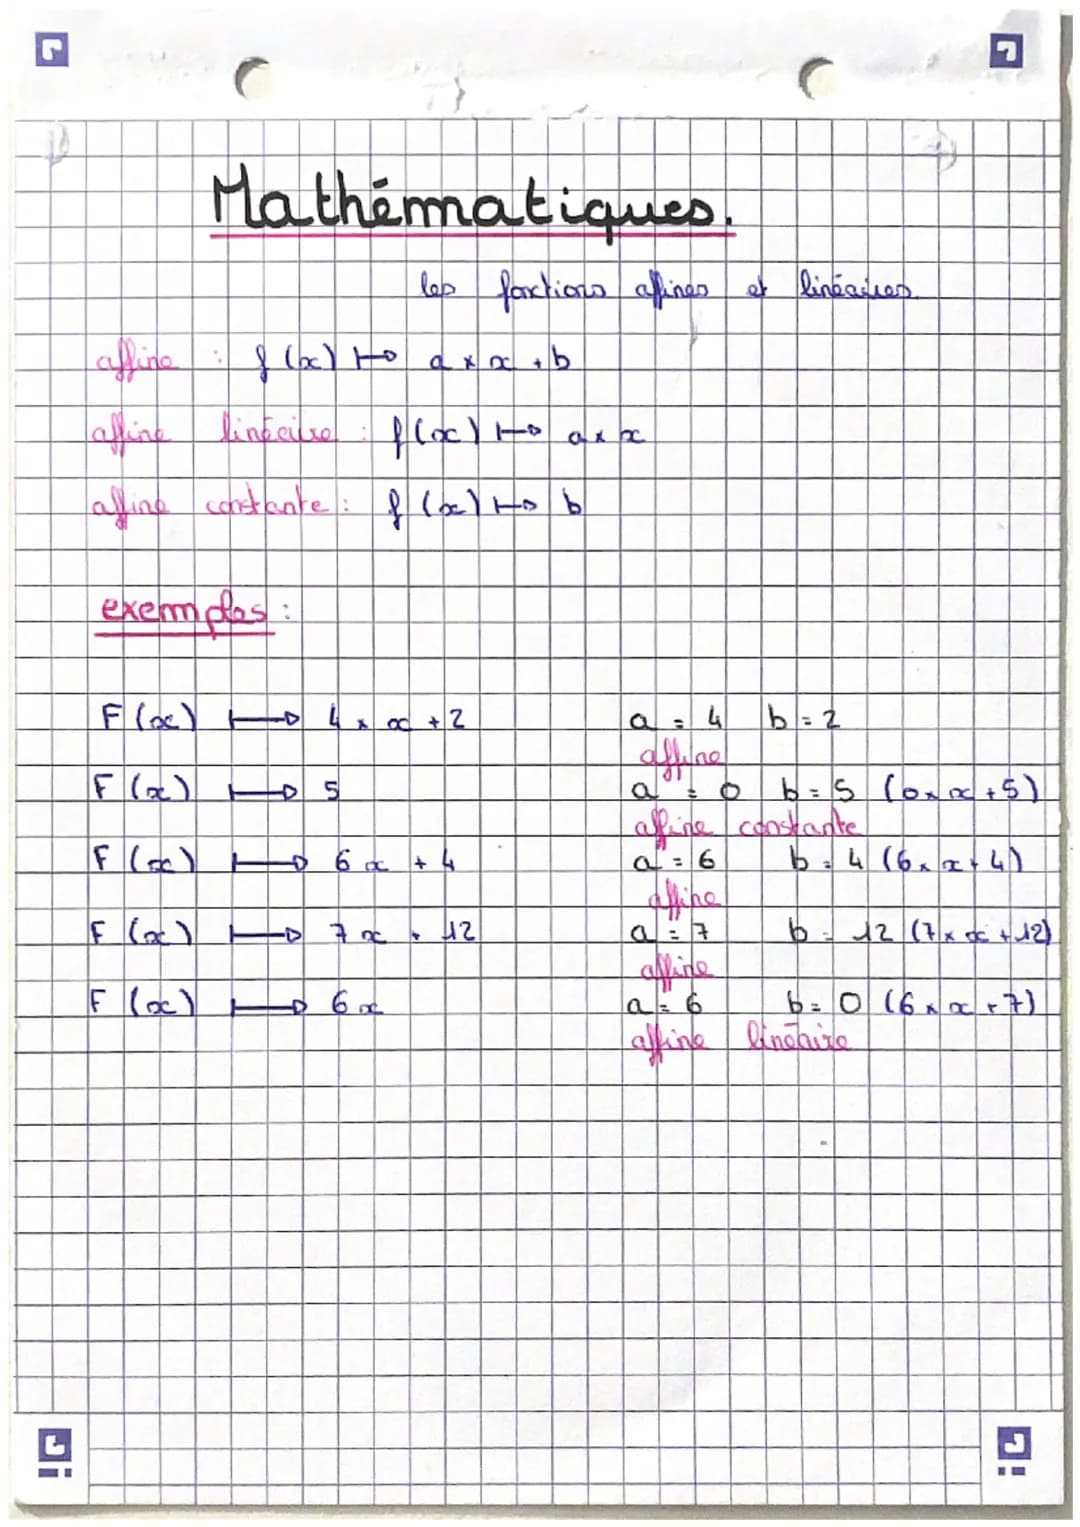 Mathématiques.
les fonctions affines et linéaires.
affine : f (x) ↦ a × x + b
affine linéaire : f(x) ↦ a × x
affine constante : f (x) ↦ b
exemples :
F (x) ↦ 4 × x + 2 a = 4 b = 2
affine
F (x) ↦ 5 a = 0 b = 5 (0 × x + 5)
affine constante
F (x) ↦ 6 x + 4 a = 6 b = 4 (6 × x + 4)
affine
F (x) ↦ 7 x + 12 a = 7 b = 12 (7 × x + 12)
affine
F (x) ↦ 6 x a = 6 b = 0 (6 × x + 7)
affine linéaire